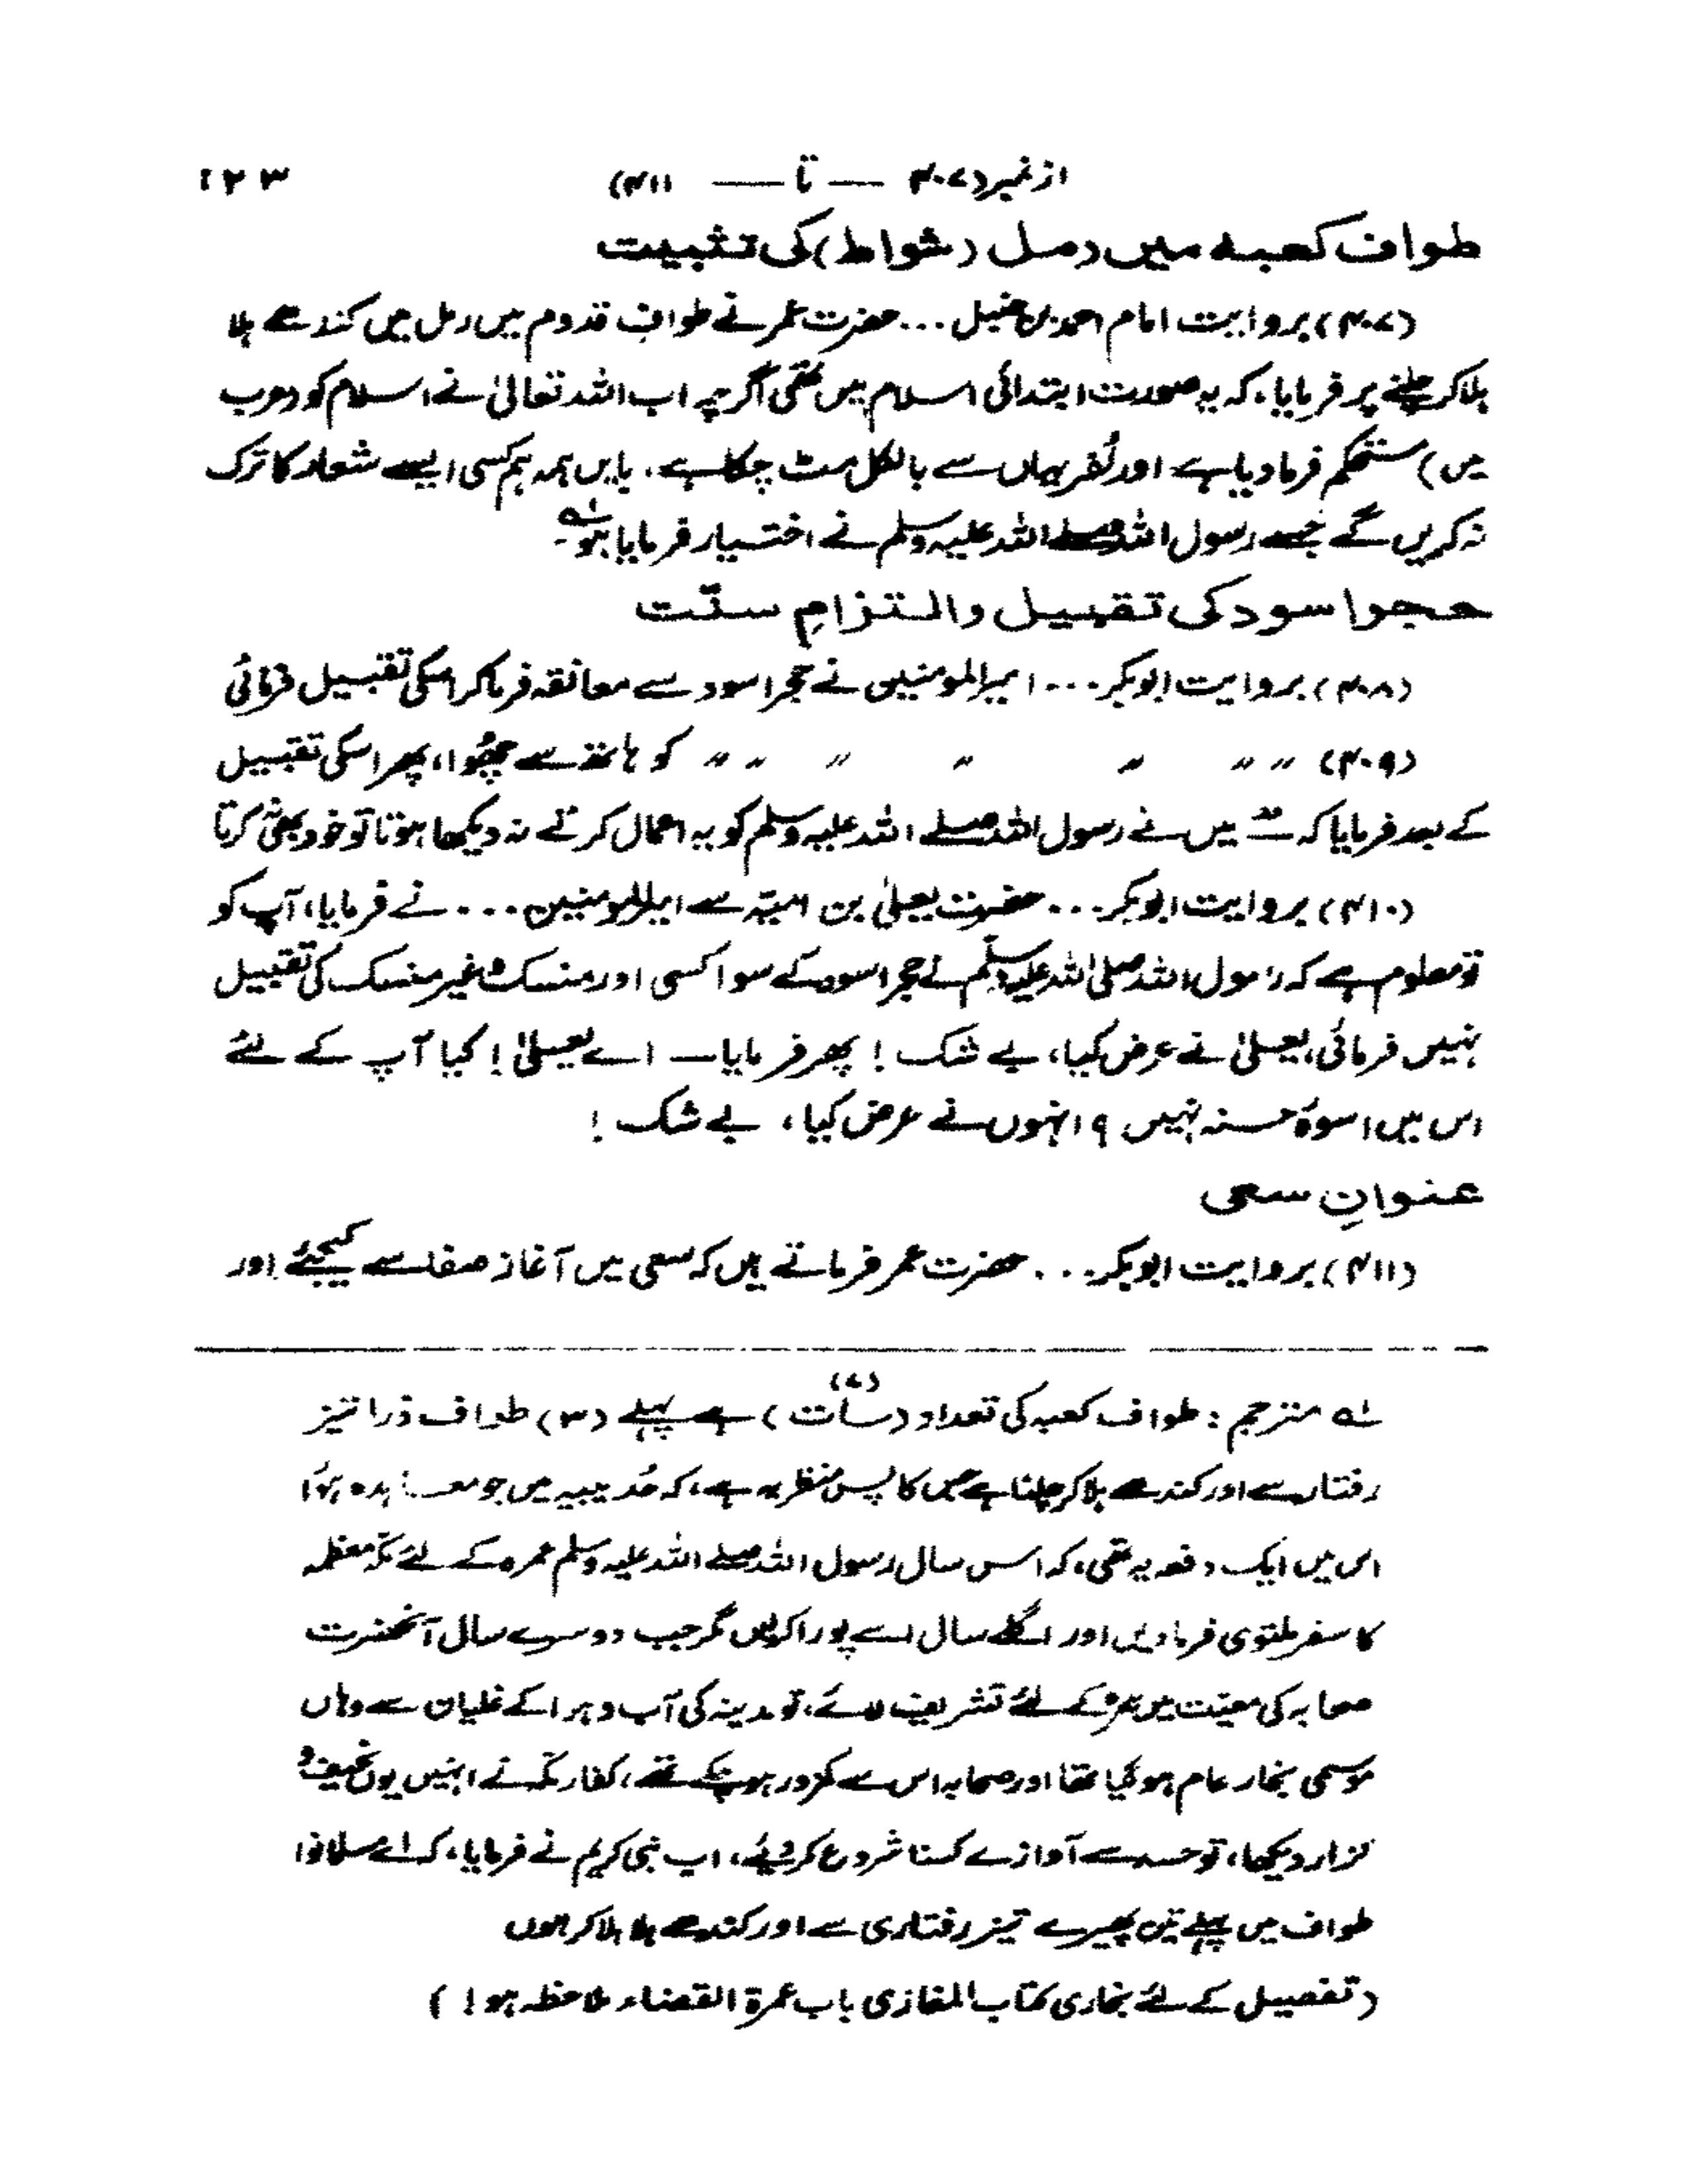 از نمبر (۴۰۷ — تا — ۴۱۱) ۱۲۳
طواف کعبہ میں رمل (شواط) کی تثبیت
(۴۰۷) بروایت امام احمد بن حنبل ... حضرت عمر نے طواف قدوم میں رمل میں کندھے ہلا
ہلا کر چلنے پر فرمایا، کہ یہ صورت ابتدائی اسلام میں تھی اگرچہ اب اللہ تعالیٰ نے اسلام کو (عرب
میں) مستحکم فرما دیا ہے اور کفر یہاں سے بالکل مٹ چکا ہے، بایں ہمہ ہم کسی ایسے شعار کا ترک
نہ کریں گے جسے رسول اللہ صلے اللہ علیہ وسلم نے اختیار فرمایا ہو۔ ؎۱
حجر اسود کی تقبیل و التزامِ سنّت
(۴۰۸) بروایت ابوبکر ... امیر المومنین نے حجر اسود سے معانقہ فرما کر اسکی تقبیل فرمائی
(۴۰۹) 〃 〃 〃 〃 〃 〃 〃 کو ہاتھ سے چھُوا، پھر اسکی تقبیل
کے بعد فرمایا کہ میں نے رسول اللہ صلے اللہ علیہ وسلم کو یہ اعمال کرتے نہ دیکھا ہوتا تو خود بھی نہ کرتا
(۴۱۰) بروایت ابوبکر ... حضرت یعلیٰ بن امیّہ سے امیر المومنین ... نے فرمایا، آپ کو
تو معلوم ہے کہ رسول اللہ صلی اللہ علیہ وسلّم نے حجر اسود کے سوا کسی اور منسک و غیر منسک کی تقبیل
نہیں فرمائی، یعلیٰ نے عرض کیا، بے شک ! پھر فرمایا — اے یعلیٰ ! کیا آپ کے لئے
اس میں اسوۂ حسنہ نہیں ؟ انہوں نے عرض کیا، بے شک !
عنوانِ سعی
(۴۱۱) بروایت ابوبکر ... حضرت عمر فرماتے ہیں کہ سعی میں آغاز صفا سے کیجئے اور
؎۱ مترجم : طواف کعبہ کی تعداد (سات) (۷) ہے پہلے (۳) طواف ذرا تیز
رفتار سے اور کندھے ہلا کر چلنا ہے جس کا پس منظر یہ ہے، کہ حُدیبیہ میں جو معاہدہ ہوا
اس میں ایک دفعہ یہ تھی، کہ اس سال رسول اللہ صلے اللہ علیہ وسلم عمرہ کے لئے مکّہ معظمہ
کا سفر ملتوی فرما دیں اور اگلے سال اسے پورا کریں مگر جب دوسرے سال آنحضرت
صحابہ کی معیّت میں عمرہ کے لئے تشریف لائے، تو مدینہ کی آب و ہوا کے غلیان سے وہاں
موسمی بخار عام ہو گیا تھا اور صحابہ اس سے کمزور ہو چکے تھے، کفار مکّہ نے انہیں یوں نحیف و
نزار دیکھا، تو حسد سے آوازے کسنا شروع کر دیئے، اب نبی کریم نے فرمایا، کہ اے مسلمانو!
طواف میں پہلے تین پھیرے تیز رفتاری سے اور کندھے ہلا ہلا کر ہوں
(تفصیل کے لئے بخاری کتاب المغازی باب عمرۃ القضاء ملاحظہ ہو ! )